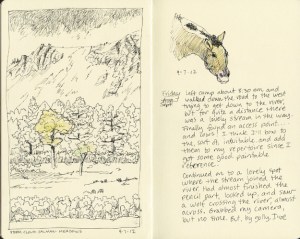 4-7-12
Friday: Left camp about 8:30 am and
walked down the road to the west
trying to get down to the river,
but for quite a distance there
was a lovely stream in the way.
Finally found an access point
and cows! I think I'll bow to
the, sort of, inevitable and add
them to my repertoire since I
got some good paintable
reference.
Continued on to a lovely spot
where the stream joined the
river. Had almost finished the
pencil part, looked up, and saw
a wolf crossing the river, almost
across. Grabbed my camera,
but no time. But, by golly, I've
4-7-12